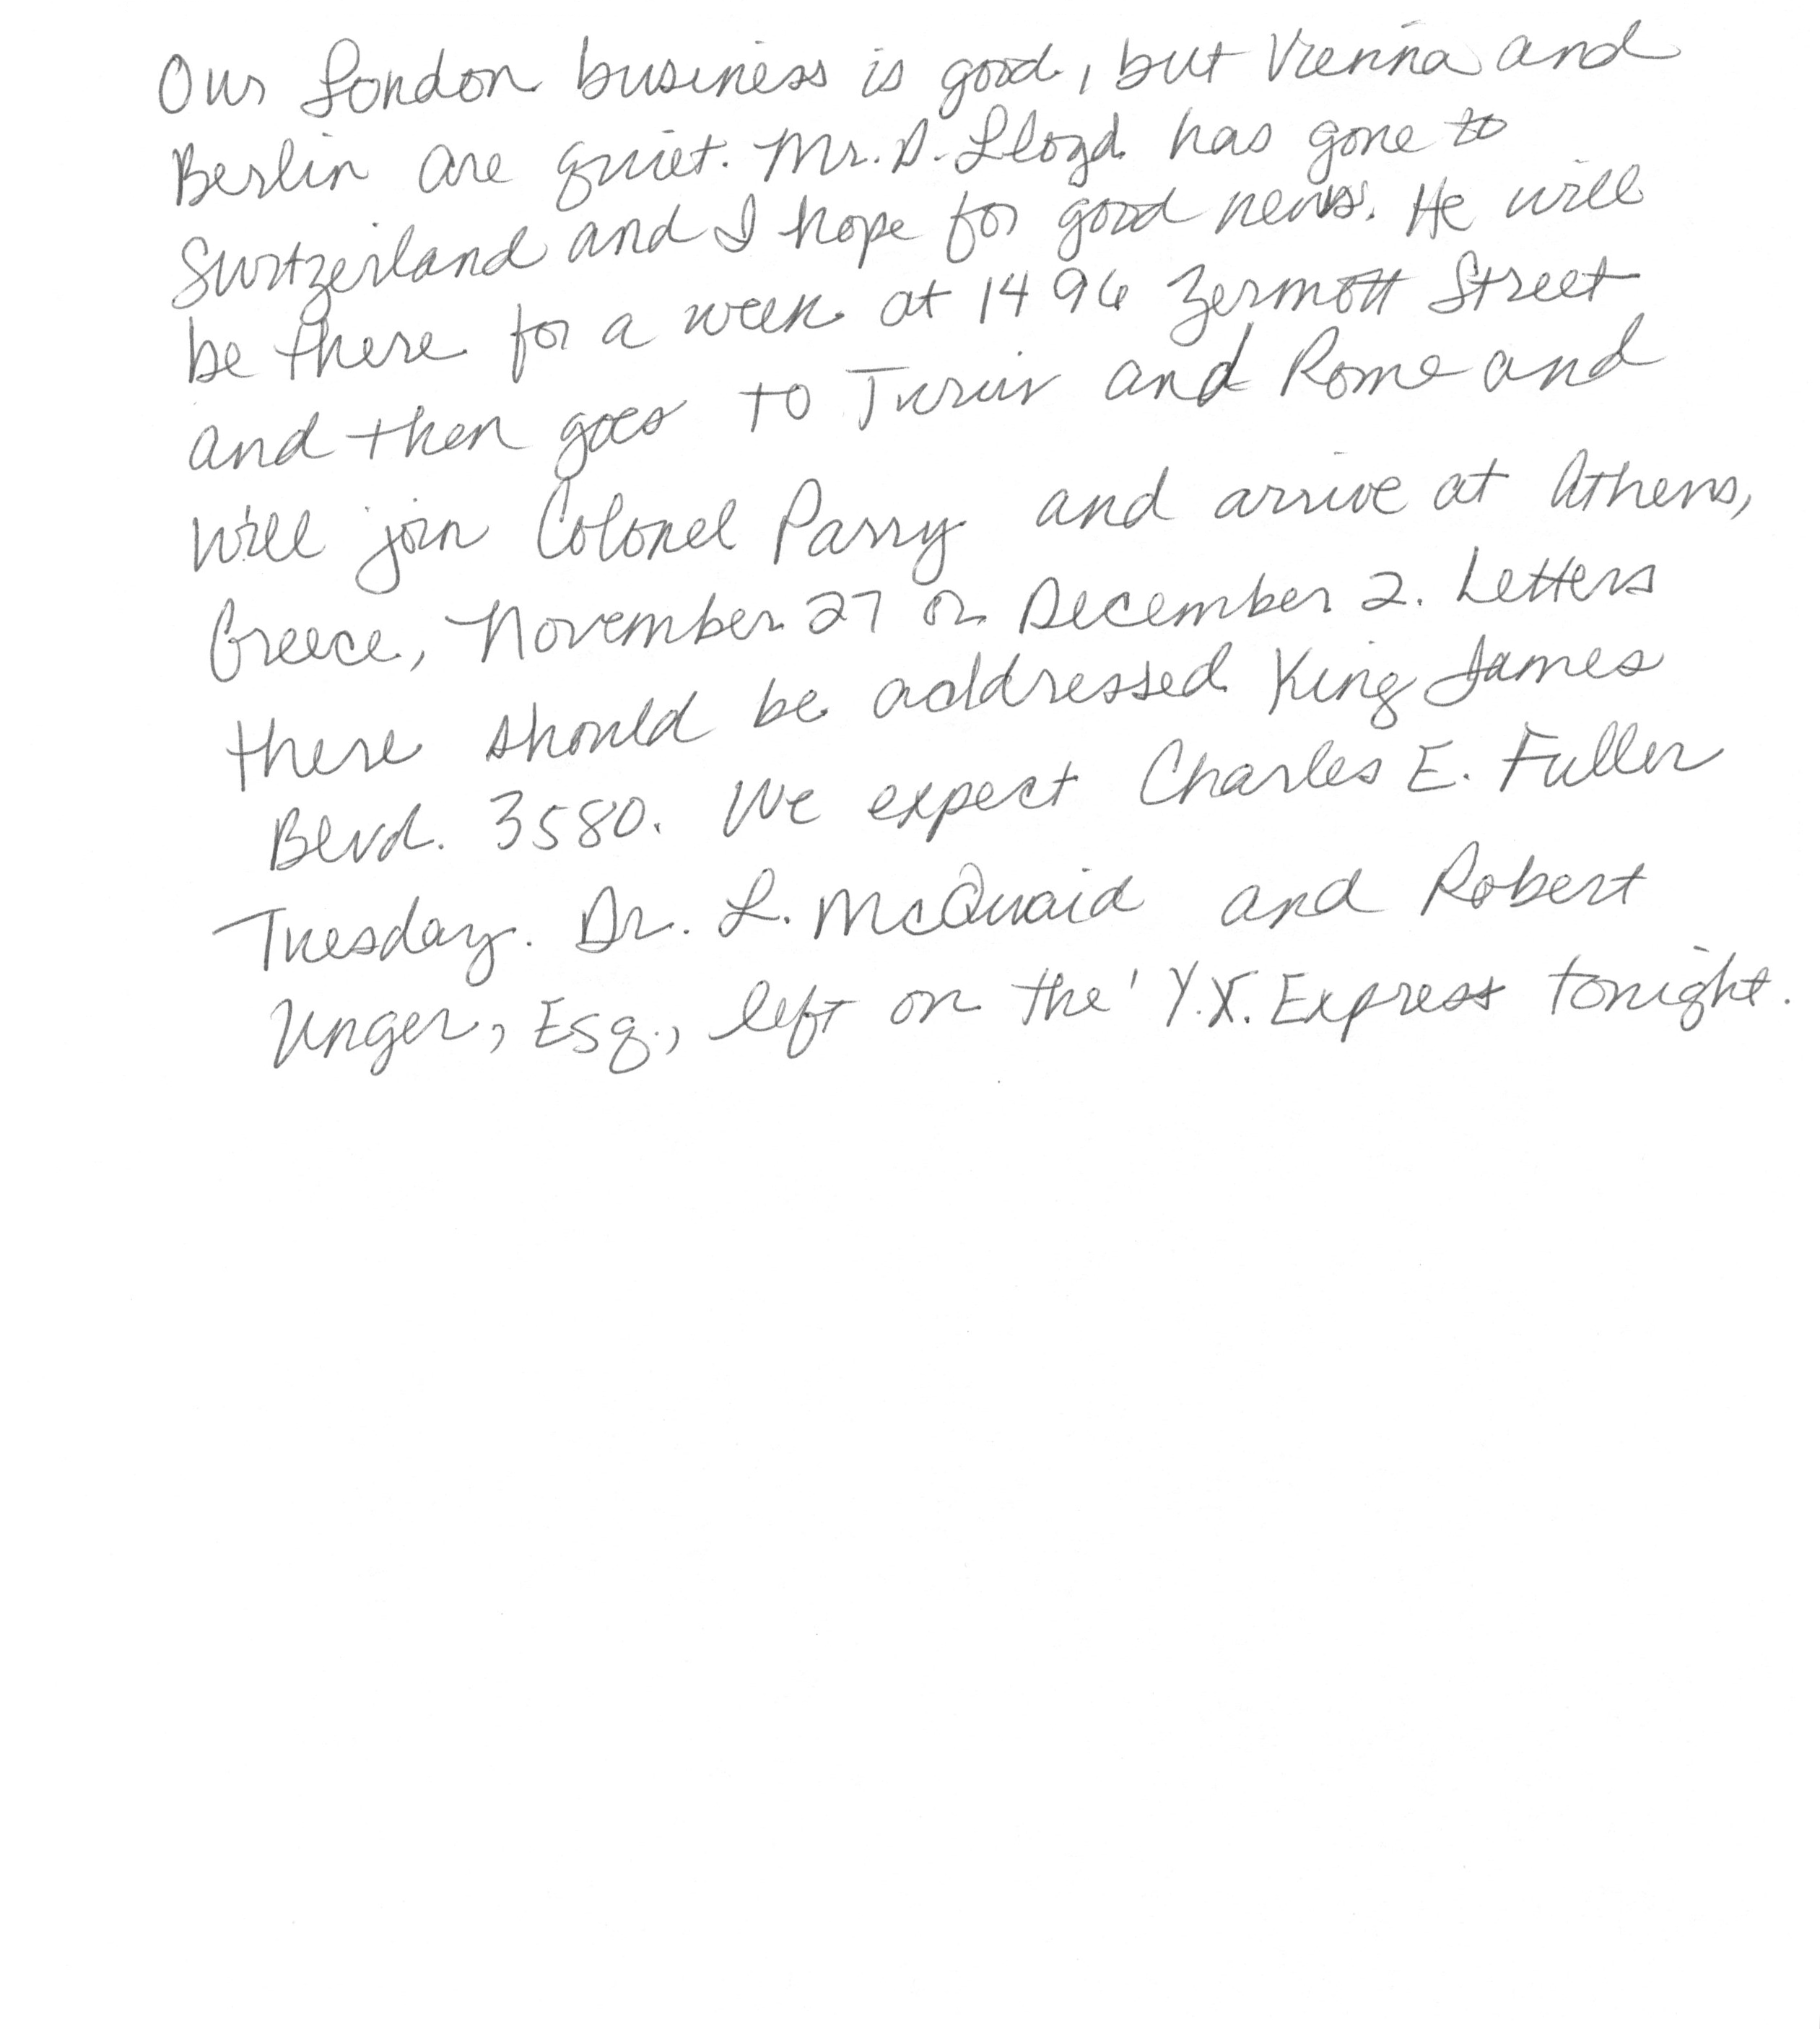 Our London business is good, but Vienna and
Berlin are quiet. Mr. D. Lloyd has gone to
Switzerland and I hope for good news. He will
be there for a week at 1496 Zermott Street
and then goes to Turin and Rome and
will join Colonel Parry and arrive at Athens,
Greece, November 27 or December 2. Letters
there should be addressed King James
Blvd. 3580. We expect Charles E. Fuller
Tuesday. Dr. L. McQuaid and Robert
Unger, Esq., left on the 'Y.X. Express tonight.